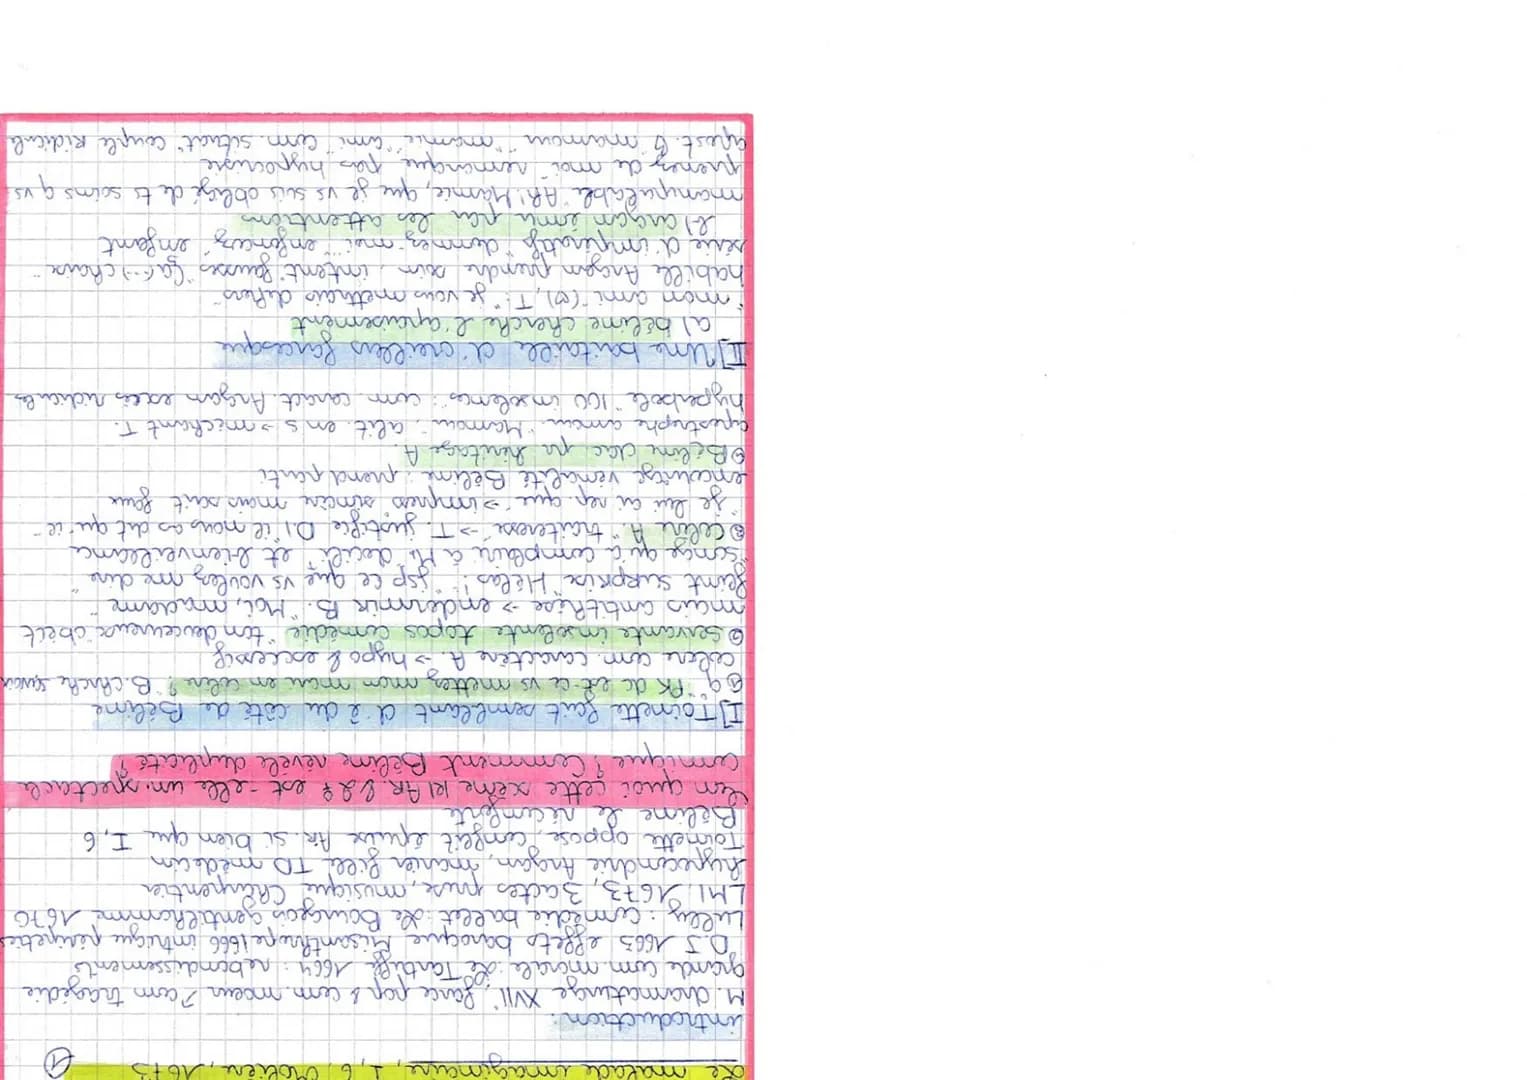 Le malade imaginaire, I, 6, Molière, 1673 ①
introduction:
M. dramaturge XVII°, farce pop & com. moeur ≠ com tragédie
grande com. morale: Le Tartuffe 1664: rebondissements
D.J 1665 effets baroque Misanthrope 1666 intrigue péripéties
Lully: comédie ballet: Le Bourgeois gentilhomme 1670
LMI, 1673, 3 actes, prose, musique Charpentier
hypocondrie Argan, marier fille TD médecin
Toinette oppose, conflit épuise AR. si bien que I, 6
Béline le réconforte
En quoi cette scène ici AR. & est-elle un spectacle
comique? Comment Béline révèle duplicité?
I] Toinette fait semblant d'ê du côté de Béline
"PK dc est-ce vs mettez mon mari en colère?" B. cherche savoir
colère com. caractère A. -> hypo & excessif
servante insolente topos comédie "ton doucereux" obéit
mais antithèse -> endormir B. "Moi, madame"
feint surprise "Hélas! jsp ce que vs voulez me dire"
"songe qu'à complaire à Mr" docilité et bienveillance
colère A. "traîtresse" -> T. justifie D.I "il nous as dit qu'il"
"je lui ai rep. que" -> impress sincère mais sait faux
encourage vénalité Béline: prend parti
Béline dac pr héritage A
apostrophe amour "Mamour", alit. en s -> méchant T.
hyperbole "100 insolences": com. caract. Argan excès ridicules
II] Une bataille d'oreillers farcesque
a) béline cherche l'apaisement
"mon ami" (②), T: "je vous mettrais dehors"
habille Argan prendre soin, intent° fausses "Çà (...) chaise"
série d'impératifs "donnez-moi" "enfoncez" enfant
b) argan ému par les attentions
manipulable "AR! Mamie, que je vs suis obligé de ts soins q vs
prenez de moi" remarque pas hypocrisie
apost. ② "mamour" "mamie" "ami" com. situat° couple ridicule